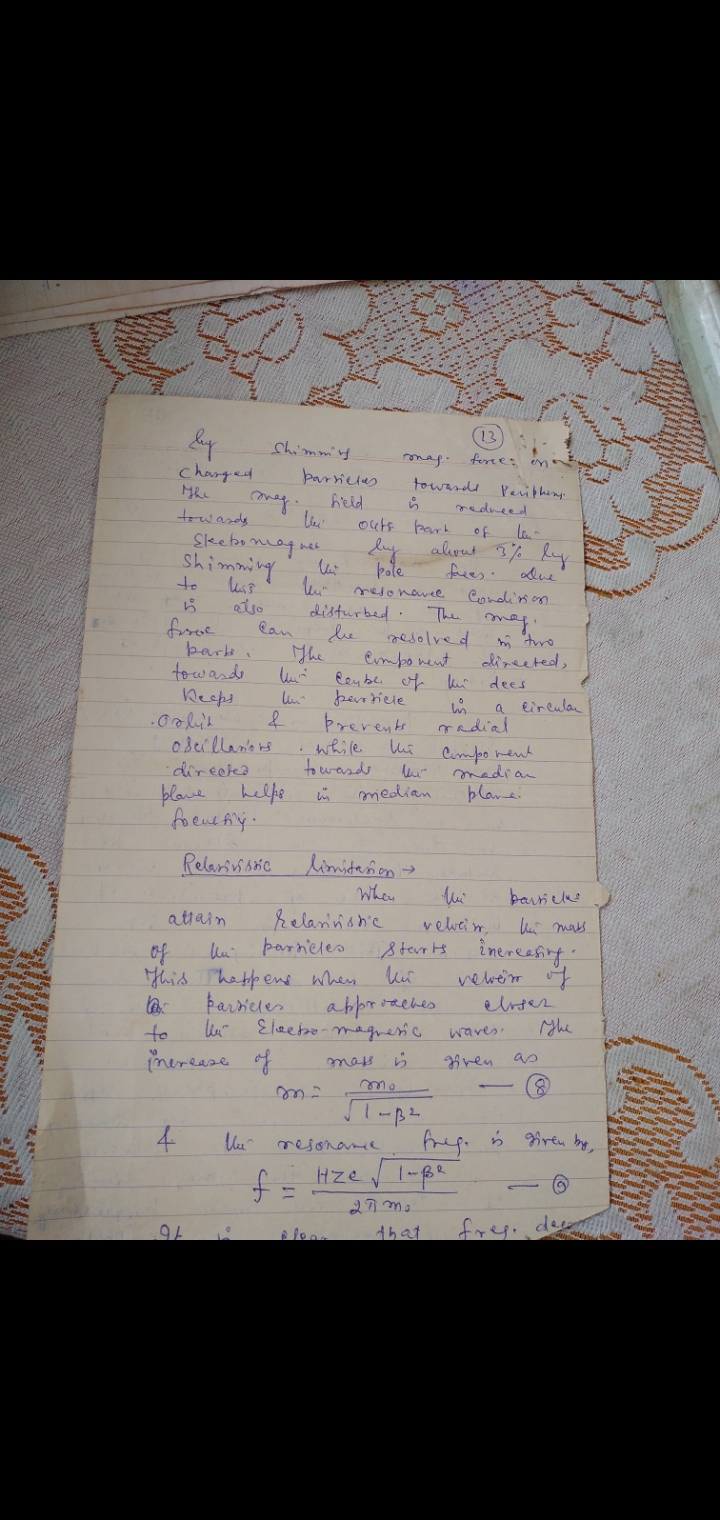 13
by shimming mag. force on
charged particles towards Periphery.
The mag. field is reduced
towards the outs part of the
Electromagnet by about 3% by
Shimming the pole faces. Due
to this the resonance Condition
is also disturbed. The mag.
force can be resolved in two
parts. The component directed,
towards the center of the dees
keeps the particle in a circular
orbit & prevents radial
oscillations. while the component
directed towards the median
plane helps in median plane
focusing.
Relativistic limitation →
When the particles
attain Relativistic velocity, the mass
of the particles starts increasing.
This happens when the velocity of
particles approaches closer
to the Electro-magnetic waves. The
increase of mass is given as
m = m₀ / √(1-β²) — ⑧
& the resonance freq. is given by,
f = HZe √(1-β²) / 2πm₀ — ⑨
It is clear that freq.